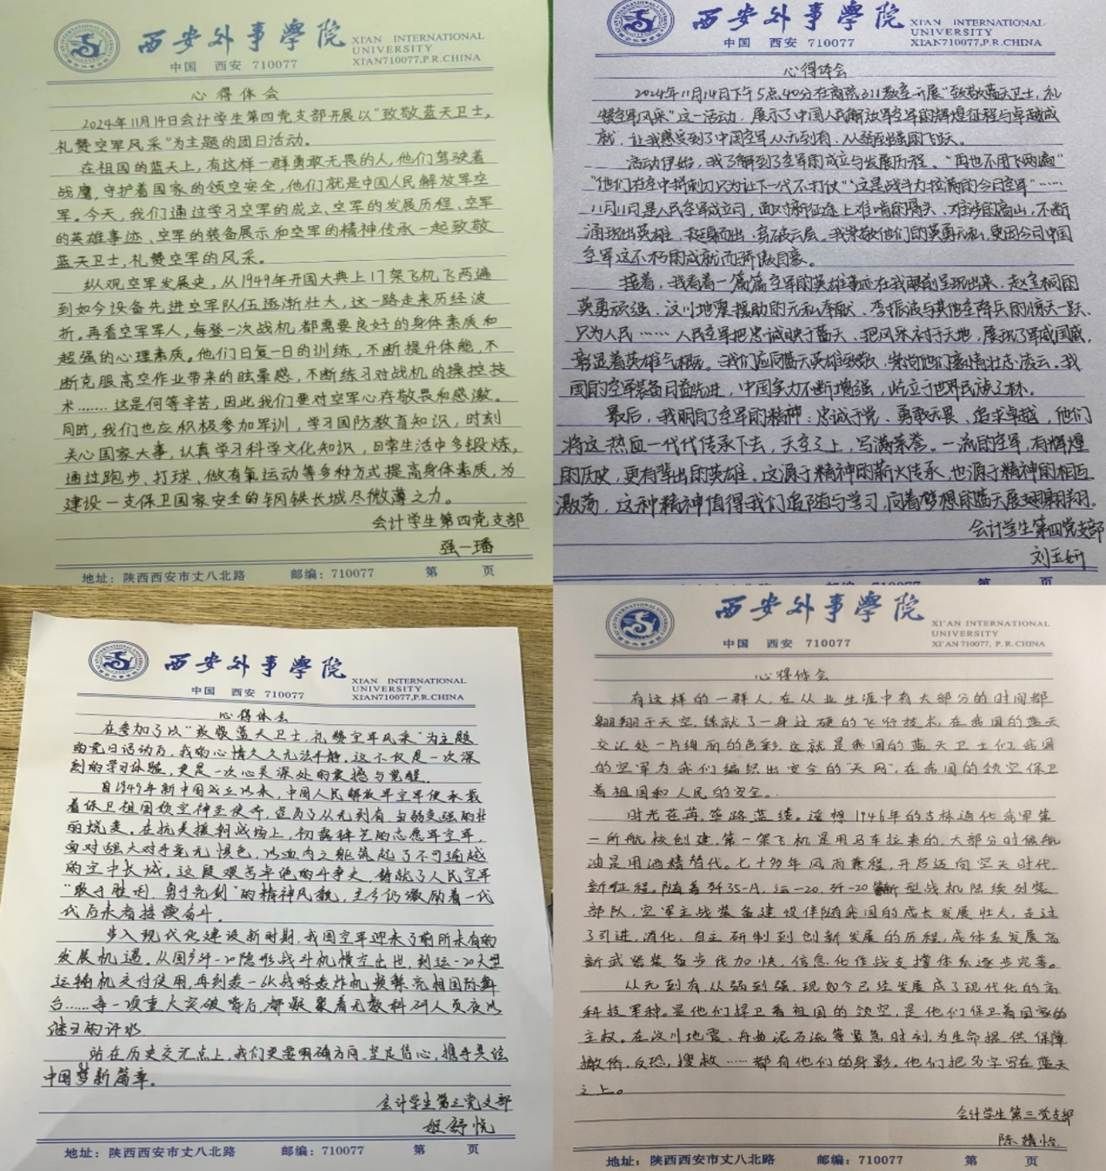 西安外事學院
XI'AN INTERNATIONAL
UNIVERSITY
XI'AN 710077, P.R.CHINA
中国 西安 710077
心得体会
2024年11月14日会计学生第四党支部开展以“致敬蓝天卫士,
礼赞空军风采”为主题的团日活动。
在祖国的蓝天上,有这样一群勇敢无畏的人,他们驾驶着
战鹰,守护着国家的领空安全,他们就是中国人民解放军空
军。今天,我们通过学习空军的成立、空军的发展历程、空军
的英雄事迹、空军的装备展示和空军的精神传承一起致敬
蓝天卫士,礼赞空军的风采。
纵观空军发展史,从1949年开国大典上17架飞机飞两遍
到如今设备先进空军队伍逐渐壮大,这一路走来历经波
折。再看空军军人,每登一次战机都需要良好的身体素质和
超强的心理素质。他们日复一日的训练,不断提升体能,不
断克服高空作业带来的眩晕感,不断练习对战机的操控技
术……这是何等辛苦,因此我们要对空军心存敬畏和感激。
同时,我们也应积极参加军训,学习国防教育知识,时刻
关心国家大事,认真学习科学文化知识,日常生活中多锻炼,
通过跑步、打球、做有氧运动等多种方式提高身体素质,为
建设一支保卫国家安全的钢铁长城尽微薄之力。
会计学生第四党支部
强一璠
地址:陕西西安市丈八北路 邮编:710077 第 页
西安外事學院
XI'AN INTERNATIONAL
UNIVERSITY
XI'AN710077,P.R.CHINA
中国 西安 710077
心得体会
2024年11月14日下午5点40分在商院311教室开展“致敬蓝天卫士,礼
赞空军风采”这一活动,展示了中国人民解放军空军的辉煌征程与卓越成
就,让我感受到了中国空军从无到有、从弱到强的飞跃。
活动伊始,我了解到了空军的成立与发展历程。“再也不用飞两遍”
“他们在空中拼刺刀只为让下一代不打仗”“这是战斗力拉满的今日空军”……
11月11日是人民空军成立日,面对新征途上难啃的骨头、难涉的高山,不断
涌现出英雄,挺身而出,穿破云层。我崇敬他们的英勇无私,更因今日中国
空军这不朽的成就而骄傲自豪。
接着,我看着一篇篇空军的英雄事迹在我眼前呈现出来,赵宝桐的
英勇顽强、汶川地震援助的无私奉献、李振波与其他空降兵的惊天一跃、
只为人民……人民空军把忠诚映于蓝天、把风采衬于天地,展现了军威国威,
彰显着英雄气概。我们应向蓝天英雄致敬,崇尚他们豪情壮志凌云。我
国的空军装备日益先进,中国实力不断增强,屹立于世界民族之林。
最后,我明白了空军的精神:忠诚于党、勇敢无畏、追求卓越,他们
将这热血一代代传承下去,天空之上,写满荣誉。一流的空军,有辉煌
的历史,更有辈出的英雄。这源于精神的薪火传承,也源于精神的相近
激荡,这种精神值得我们追随与学习,向着梦想的蓝天展翅翱翔。
会计学生第四党支部
刘玉妍
地址:陕西西安市丈八北路 邮编:710077 第 页
西安外事學院
XI'AN INTERNATIONAL
UNIVERSITY
XI'AN710077,P.R.CHINA
中国 西安 710077
心得体会
在参加了以“致敬蓝天卫士,礼赞空军风采”为主题
的党日活动后,我的心情久久无法平静。这不仅是一次深
刻的学习体验,更是一次心灵深处的震撼与觉醒。
自1949年新中国成立以来,中国人民解放军空军便承载
着保卫祖国领空神圣使命,经历了从无到有、由弱变强的壮
丽蜕变。在抗美援朝战场上,初露锋芒的志愿军空军,
面对强大对手毫无惧色,以血肉之躯筑起了不可逾越
的空中长城。这段艰苦卓绝的斗争史,铸就了人民空军
“敢于胜利,勇于亮剑”的精神风貌,至今仍激励着一代
代后来者接续奋斗。
步入现代化建设新时期,我国空军迎来了前所未有的
发展机遇。从国产歼-20隐形战斗机横空出世,到运-20大型
运输机交付使用,再到轰-6K战略轰炸机频繁亮相国际舞
台……每一项重大突破背后,都凝聚着无数科研人员夜以
继日的汗水
站在历史交汇点上,我们更要明确方向,坚定信心,携手共绘
中国梦新篇章。
会计学生第三党支部
舒悦
地址:陕西西安市丈八北路 邮编:710077 第 页
西安外事學院
XI'AN INTERNATIONAL
UNIVERSITY
XI'AN 710077, P.R.CHINA
中国 西安 710077
心得体会
有这样的一群人,在从业生涯中有大部分的时间都
翱翔于天空,练就了一身过硬的飞行技术,在我国的蓝天
交汇处一片绚丽的色彩,这就是我国的蓝天卫士们,我国
的空军为我们编织出安全的“天网”,在我国的领空保卫
着祖国和人民的安全。
时光荏苒,筚路蓝缕,遥想1946年的吉林通化我军第
一所航校创建,第一架飞机是用马车拉来的,大部分时候航
油是用酒精替代。七十多年风雨兼程,开启迈向空天时代
新征程,随着歼35-A,运-20,歼-20新型战机陆续列装
部队,空军主战装备建设伴随我国的成长发展壮大,走过
了引进,消化,自主研制到创新发展的历程,成体系发展高
新武器装备步伐加快,信息化作战支撑体系逐步完善。
从无到有,从弱到强,现如今已经发展成了现代化的高
科技军种。是他们捍卫着祖国的领空,是他们保卫着国家的
主权。在汶川地震,舟曲泥石流等紧急时刻,为生命提供保障
撤侨,反恐,搜救……都有他们的身影。他们把名字写在蓝天
之上。
会计学生第三党支部
陈婧怡
地址:陕西西安市丈八北路 邮编:710077 第 页